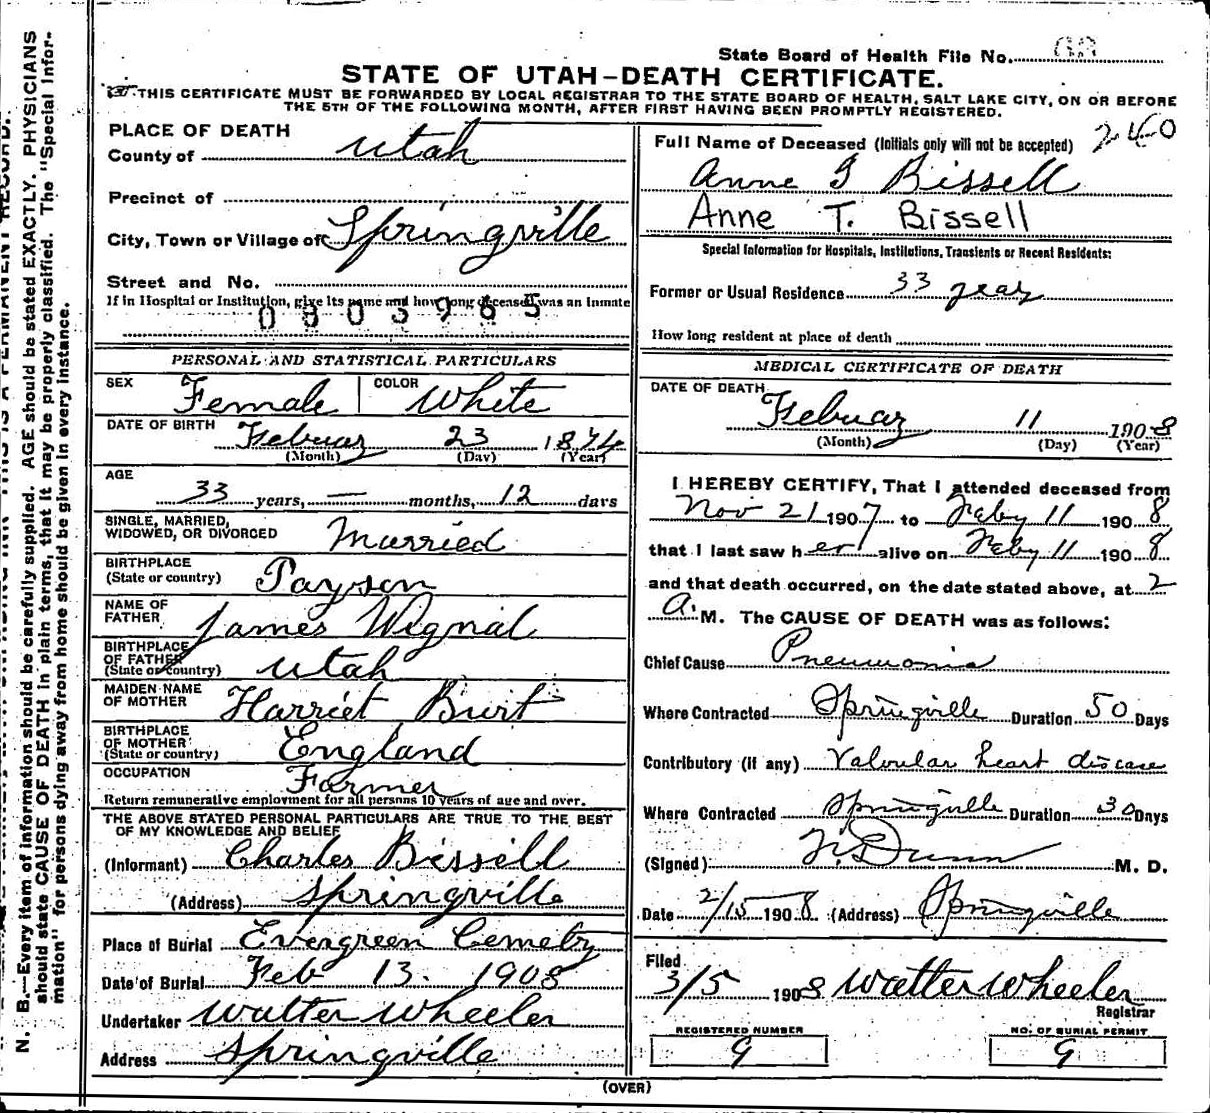 State Board of Health File No. 68
STATE OF UTAH-DEATH CERTIFICATE.
THIS CERTIFICATE MUST BE FORWARDED BY LOCAL REGISTRAR TO THE STATE BOARD OF HEALTH, SALT LAKE CITY, ON OR BEFORE
THE 5TH OF THE FOLLOWING MONTH, AFTER FIRST HAVING BEEN PROMPTLY REGISTERED.
240
PLACE OF DEATH
County of Utah
Precinct of
City, Town or Village of Springville
Street and No.
If in Hospital or Institution, give its name and how long deceased was an Inmate
0803965
PERSONAL AND STATISTICAL PARTICULARS
SEX Female COLOR White
DATE OF BIRTH Februay 23 1874
(Month) (Day) (Year)
AGE
33 years, — months, 12 days
SINGLE, MARRIED,
WIDOWED, OR DIVORCED Married
BIRTHPLACE
(State or country) Payson
NAME OF
FATHER James Wignal
BIRTHPLACE
OF FATHER
(State or country) Utah
MAIDEN NAME
OF MOTHER Harriet Burt
BIRTHPLACE
OF MOTHER
(State or country) England
OCCUPATION Farmer
Return remunerative employment for all persons 10 years of age and over.
THE ABOVE STATED PERSONAL PARTICULARS ARE TRUE TO THE BEST
OF MY KNOWLEDGE AND BELIEF
(Informant) Charles Bissell
(Address) Springville
Place of Burial Evergreen Cemetry
Date of Burial Feb 13. 1908
Undertaker Walter Wheeler
Address Springville
Full Name of Deceased (Initials only will not be accepted)
Anne T Bissell
Anne T. Bissell
Special Information for Hospitals, Institutions, Transients or Recent Residents:
Former or Usual Residence 33 year
How long resident at place of death
MEDICAL CERTIFICATE OF DEATH
DATE OF DEATH
Februay 11 1908
(Month) (Day) (Year)
I HEREBY CERTIFY, That I attended deceased from
Nov 21 1907 to Feby 11 1908
that I last saw her alive on Feby 11 1908
and that death occurred, on the date stated above, at 2
a. M. The CAUSE OF DEATH was as follows:
Chief Cause Pneumonia
Where Contracted Springville Duration 50 Days
Contributory (if any) Valvular heart disease
Where Contracted Springville Duration 30 Days
(Signed) Dunn M. D.
Date 2/15 1908 (Address) Springville
Filed
3/5 1908 Walter Wheeler
Registrar
REGISTERED NUMBER
9
NO. OF BURIAL PERMIT
9
(OVER)
N. B.—Every item of information should be carefully supplied. AGE should be stated EXACTLY. PHYSICIANS
should state CAUSE OF DEATH in plain terms, that it may be properly classified. The "Special Infor-
mation" for persons dying away from home should be given in every instance.